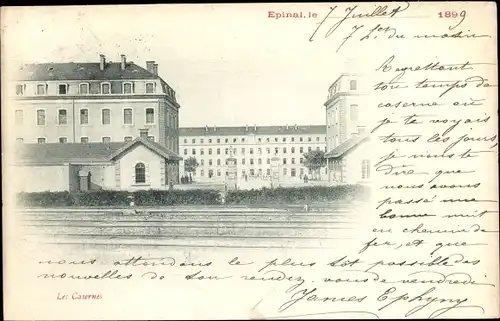 Epinal, le 7 Juillet 1899
7 h du matin
Regrettant
ton temps de
caserne où
tous les jours,
je viens te
dire que
nous avons
passé une
bonne nuit
en chemin de
fer, et que
nous attendons le plus tôt possible des
nouvelles de ton rendez-vous de vendredi
James Ephyny
Les Casernes